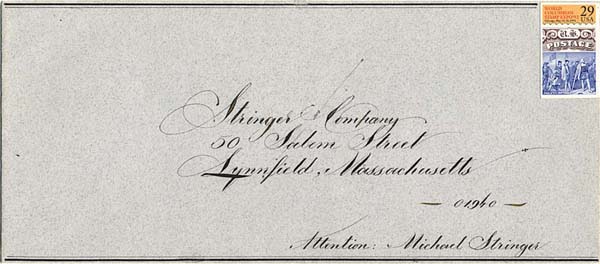 WORLD
COLUMBIAN
STAMP EXPO
29
USA
U.S.
POSTAGE
Stringer & Company
50 Salem Street
Lynnfield, Massachusetts
— 01940 —
Attention: Michael Stringer